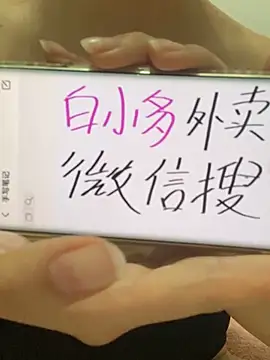 白小多外卖
微信搜